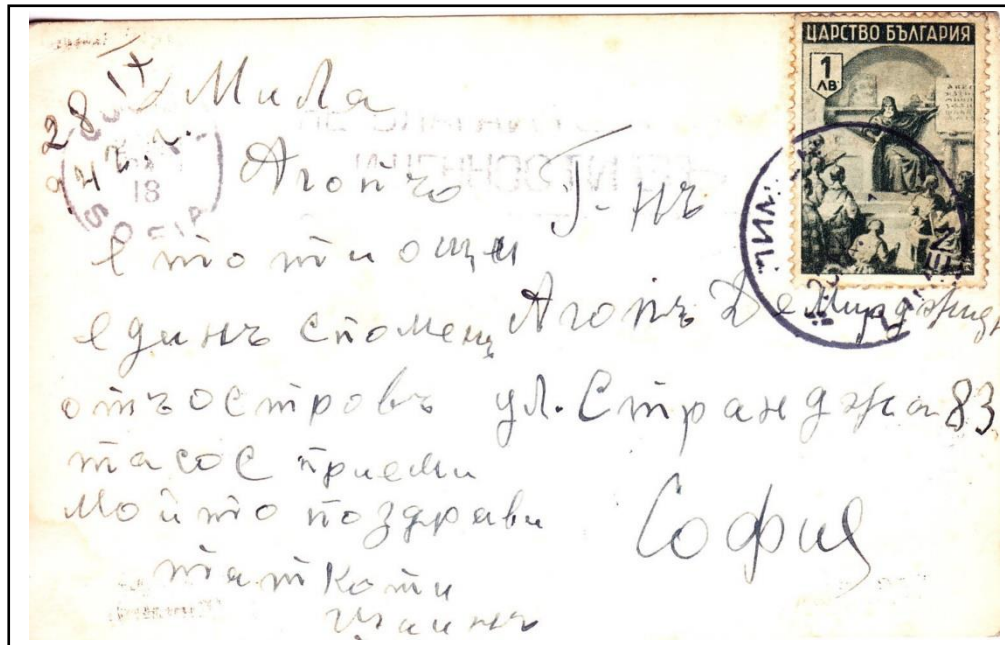 ЦАРСТВО БЪЛГАРИЯ
1
ЛВ
28 IX
18
Мила
Агопчо
ето ти още
единъ спомен
отъ островъ
тасос приеми
мойто поздрави
татко ти
Г-нъ
Агопъ
ул. Странджа 83
София